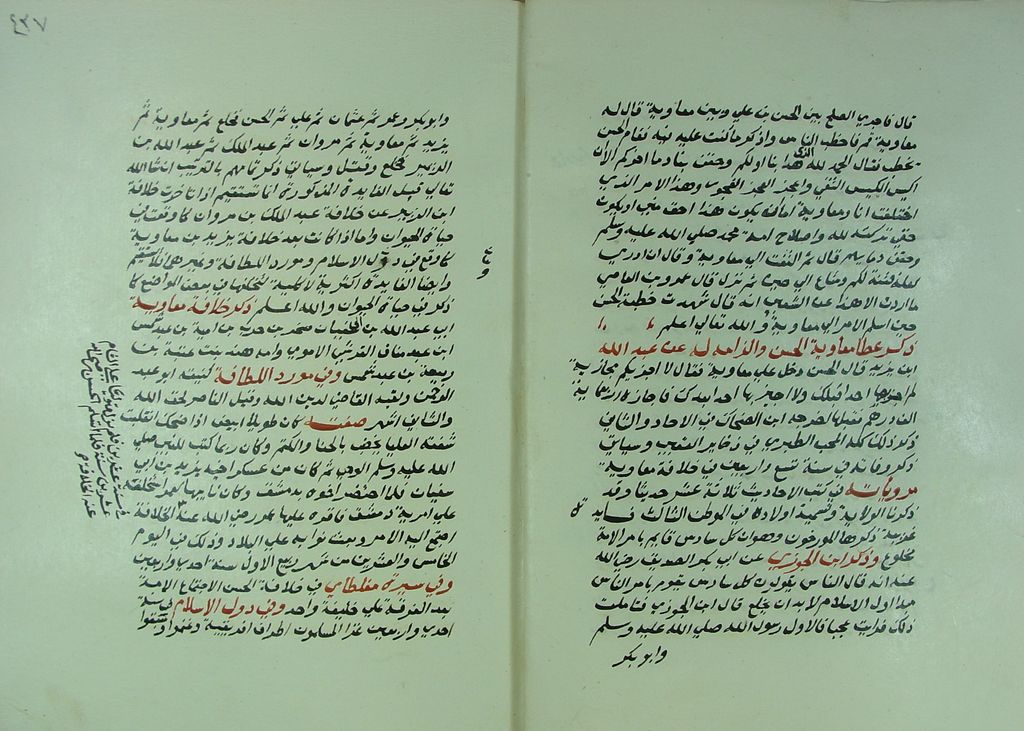 قال فاجري الصلح بين الحسن بن علي وبين معاوية قال له
معاوية قم فاخطب الناس واذكر ما كنت عليه فيه فقام الحسن
فخطب فقال الحمد لله الذي هدى بنا اولكم وحقن بنا دما اخركم الا ان
اكيس الكيس التقي واعجز العجز الفجور وهذا الامر الذي
اختلفت انا ومعاوية اما ان يكون هذا احق مني او يكون
حقي تركته لله واصلاح امة محمد صلي الله عليه وسلم
وحقن دمايهم قال ثم التفت الي معاوية وقال ان ادري
لعله فتنة لكم ومتاع الي حين ثم نزل فقال عمرو بن العاصي
ما اردت الا هذا عن الشعبي انه قال شهدت خطبة الحسن
حين اسلم الامر الي معاوية والله تعالي اعلم
ذكر عطا معاوية الحسن واكرامه له عن عبد الله
ابن بريدة قال الحسن دخل علي معاوية فقال لاجيزنكم بجائزة
لم اجيز بها احدا قبلك ولا اجيز بها احدا بعدك فاجازه باربعماية
الف درهم فقبلها خرجه ابن الضحاك في الاحاد والثاني
ذكر ذلك كله المحب الطبري في ذخاير العقبي وسياتي
ذكر وفاته في سنة تسع واربعين في خلافة معاوية
مروياته في كتب الاحاديث ثلاثة عشر حديثا وقد
ذكرنا اولاده وتسمية اولاده في الموطن الثالث فايدة
غريبة ذكرها المورخون وهو ان كل سادس قايم بامر الامة
مخلوع وذكر ابن الجوزي عن ابي بكر الصديق رضي الله
عنه انه قال الناس يقولون كل سادس يقوم بامر الناس
مبدا اول الاسلام لا بد ان يخلع قال ابن الجوزي فتاملت
ذلك فرايت عجبا فالاول رسول الله صلي الله عليه وسلم
وابو بكر
٤٣٧
وابو بكر وعمر ثم عثمان ثم علي ثم الحسن فخلع ثم معاوية ثم
يزيد ثم معاوية ثم مروان ثم عبد الملك ثم عبد الله بن
الزبير فخلع وقتل وسياتي ذكر تمامهم بالترتيب ان شا الله
تعالي قيل الفايدة المذكورة انما تستقيم اذا تاخرت خلافة
ابن الزبير عن خلافة عبد الملك بن مروان كما وقعت في
حياة الحيوان واما اذا كانت بعد خلافة يزيد بن معاوية
كما وقع في دول الاسلام ومورد اللطافة وغيرها فلا تستقيم
وايضا الفايدة اكثرية لا كلية لتخلفها في بعض المواضع كما
ذكر في حياة الحيوان والله اعلم ذكر خلافة معاوية
ابي عبد الله بن ابي سفيان صخر بن حرب بن امية بن عبد شمس
ابن عبد مناف القرشي الاموي وامه هند بنت عتبة بن
ربيعة بن عبد شمس وفي مورد اللطافة كنيته ابو عبد
الرحمن ولقبه القاضي لدين الله وقيل الناصر لحق الله
والثاني اشهر صفته كان طويلا ابيض اذا ضحك انقلبت
شفته العليا يخضب بالحنا والكتم وكان ربما كتب للنبي صلي
الله عليه وسلم الوحي ثم كان من عسكر اخيه يزيد بن ابي
سفيان فلما احتضر اخوه بدمشق وكان نايبها لعمر استخلفه
علي امرية دمشق فاقره عليها عمر رضي الله عنه الخلافة
اجتمع اليه الامر وبعث نوابه علي البلاد وذلك في اليوم
الخامس والعشرين من شهر ربيع الاول سنة احدي واربعين
وفي سيرة مغلطاي في خلافة الحسن الاجتماع الامة
بعد الفرقة علي خليفة واحد وفي دول الاسلام في سنة
احدي واربعين غزا المسلمون اطراف افريقية وغنموا وشقوا